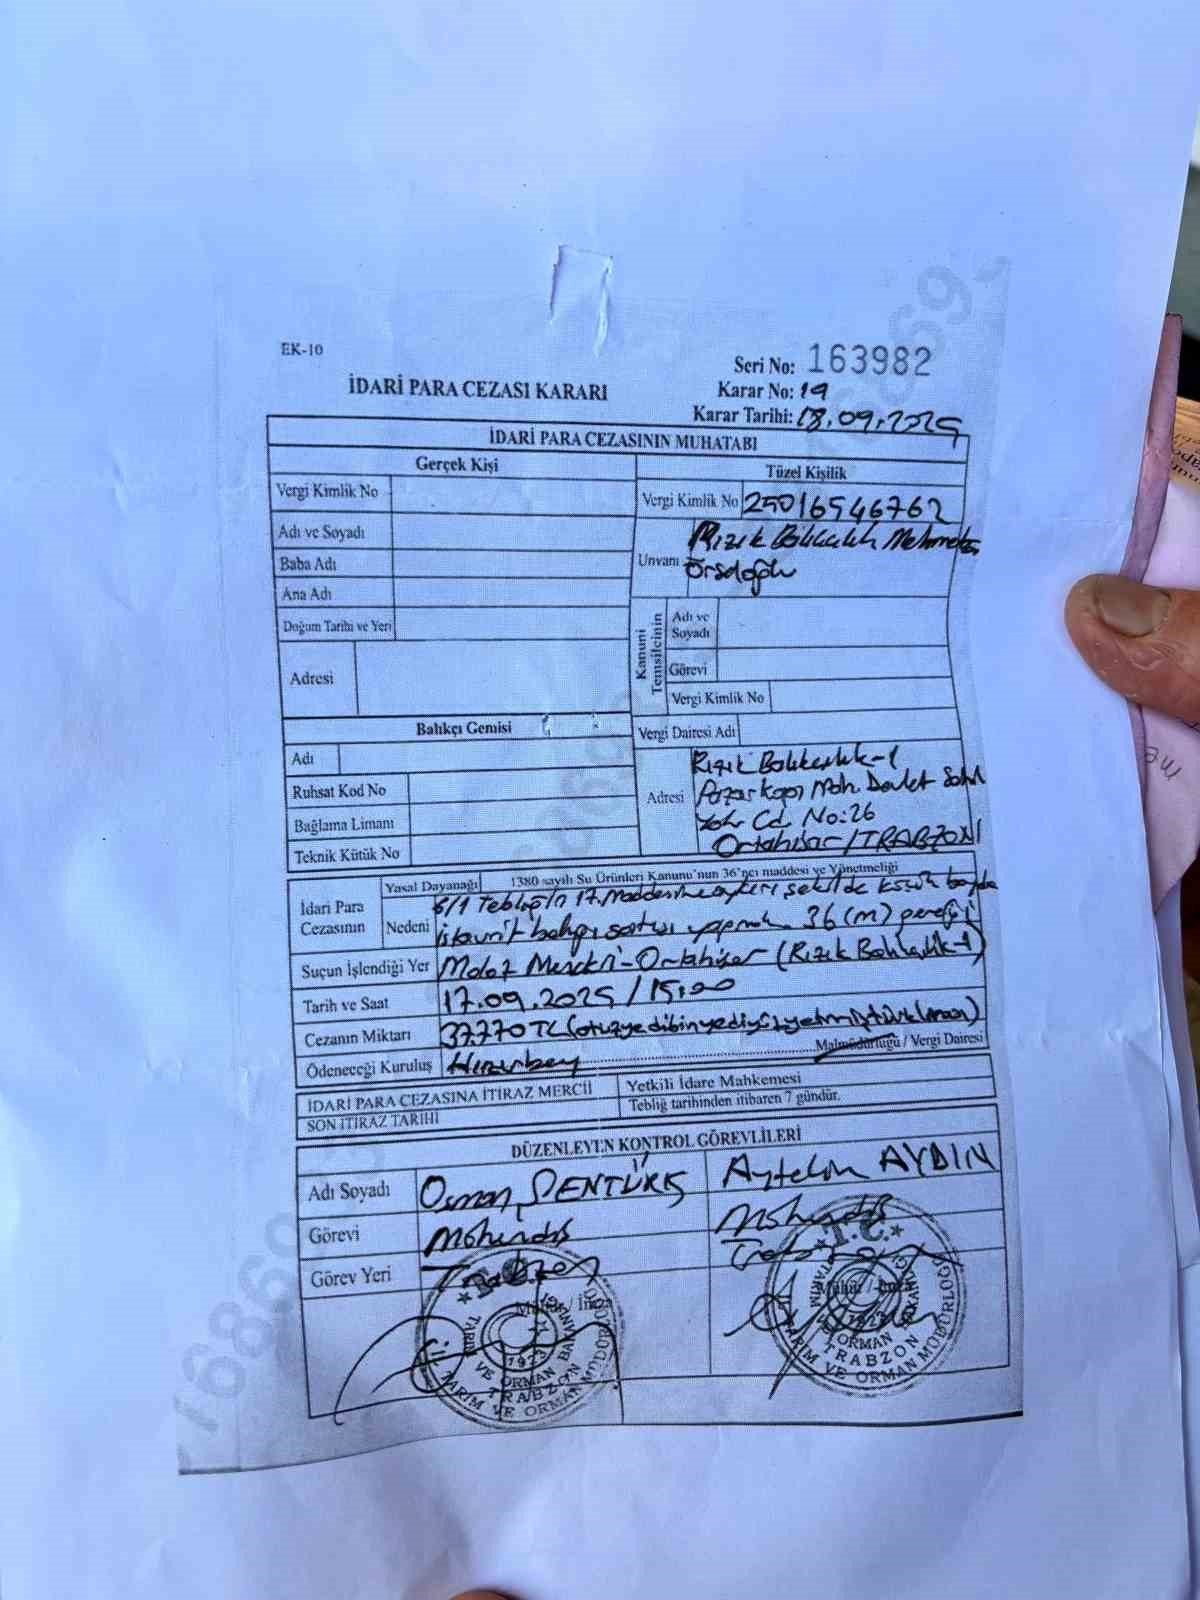 EK-10
Seri No: 163982
İDARİ PARA CEZASI KARARI
Karar No: 19
Karar Tarihi: 18.09.2025
İDARİ PARA CEZASININ MUHATABI
Gerçek Kişi
Tüzel Kişilik
Vergi Kimlik No
Vergi Kimlik No 25016546762
Adı ve Soyadı
Unvanı Rızık Balıkçılık Mehmet
Baba Adı
Ana Adı
Doğum Tarihi ve Yeri
Kanuni Temsilcinin
Adı ve Soyadı
Görevi
Vergi Kimlik No
Adresi
Balıkçı Gemisi
Vergi Dairesi Adı
Adı
Ruhsat Kod No
Bağlama Limanı
Teknik Kütük No
Adresi Rızık Balıkçılık-1
Pazarkapı Mah. Devlet Sahil
Yolu Cd. No:26
Ortahisar/TRABZON
İdari Para Cezasının
Yasal Dayanağı 1380 sayılı Su Ürünleri Kanunu'nun 36'ncı maddesi ve Yönetmeliği
Nedeni 6/1 Tebliğin 17. Maddesine aykırı şekilde küçük boyda
istavrit balığı satışı yapmak 36(m) gereği
Suçun İşlendiği Yer Moloz Mevkii-Ortahisar (Rızık Balıkçılık-1)
Tarih ve Saat 17.09.2025/15:00
Cezanın Miktarı 37.770 TL (otuzyedibinyediyüzyetmiştürklirası)
Ödeneceği Kuruluş Hızırbey Malmüdürlüğü / Vergi Dairesi
İDARİ PARA CEZASINA İTİRAZ MERCİİ Yetkili İdare Mahkemesi
SON İTİRAZ TARİHİ Tebliğ tarihinden itibaren 7 gündür.
DÜZENLEYEN KONTROL GÖREVLİLERİ
Adı Soyadı Osman ŞENTÜRK Aytekin AYDIN
Görevi Mühendis Mühendis
Görev Yeri Trabzon Trabzon
Mühür / İmza
Mühür / İmza
T.C.
TARIM VE ORMAN BAKANLIĞI
TRABZON
İL TARIM VE ORMAN MÜDÜRLÜĞÜ
1923
T.C.
TARIM VE ORMAN BAKANLIĞI
TRABZON
İL TARIM VE ORMAN MÜDÜRLÜĞÜ